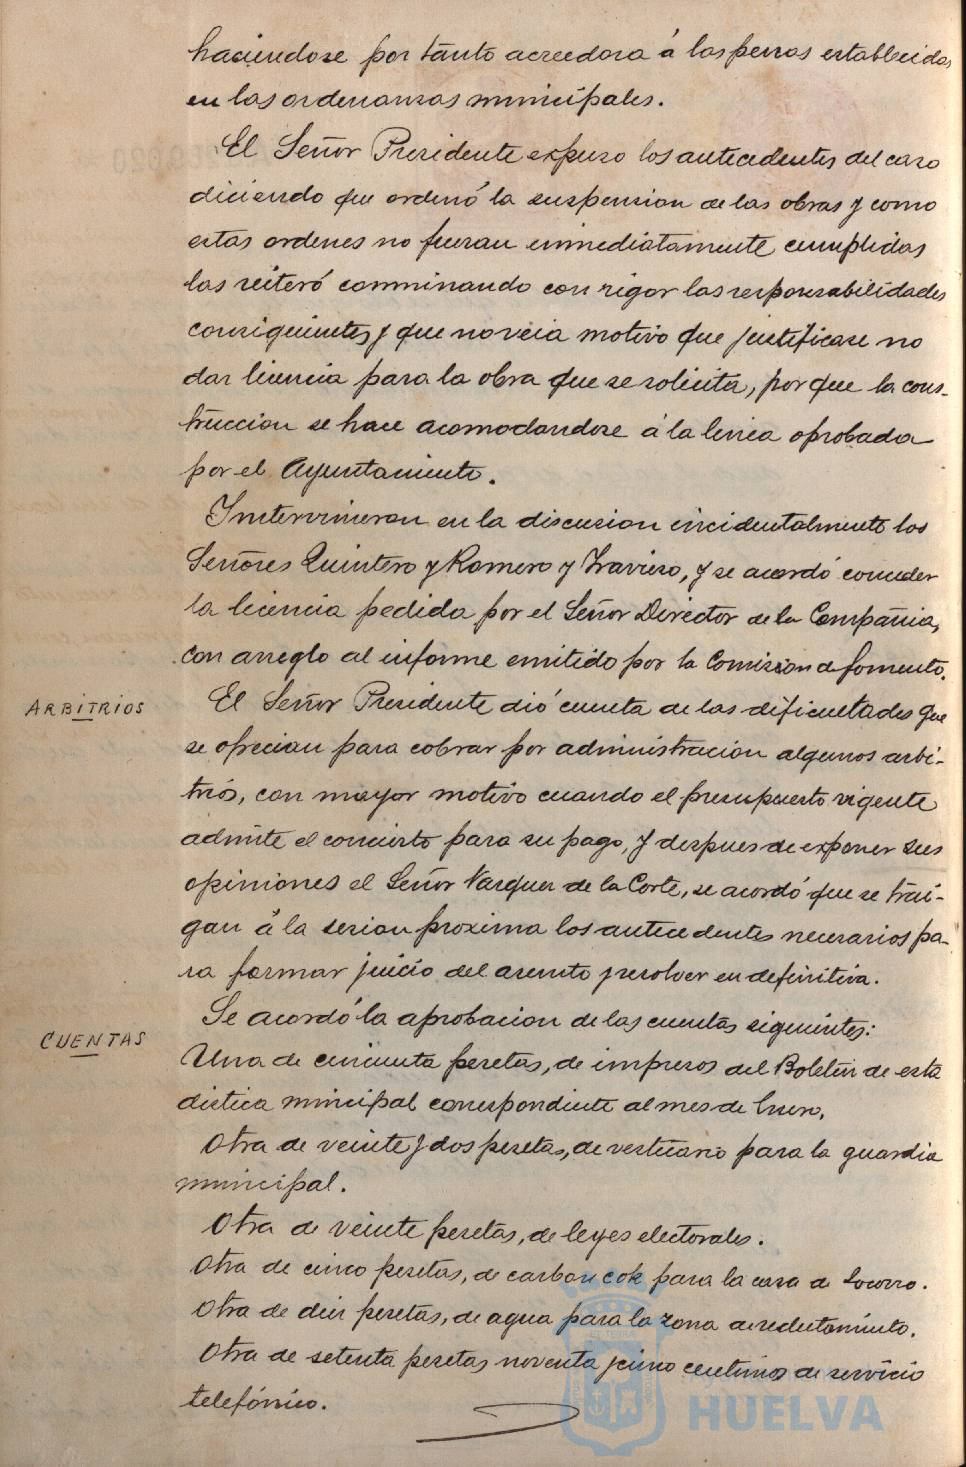 haciendose por tanto acreedora á las penas establecidas
en las ordenanzas municipales.
El Señor Presidente expuso los antecedentes del caso
diciendo que ordenó la suspension de las obras y como
estas ordenes no fueran inmediatamente cumplidas
las reiteró conminando con rigor las responsabilidades
consiguientes y que no veia motivo que justificase no
dar licencia para la obra que se solicita, por que la cons-
truccion se hace acomodandose á la linea aprobada
por el Ayuntamiento.
Intervinieron en la discusion incidentalmente los
Señores Quintero y Romero y Travieso, y se acordó conceder
la licencia pedida por el Señor Director de la Compañia,
con arreglo al informe emitido por la Comision de fomento.
ARBITRIOS
El Señor Presidente dió cuenta de las dificultades que
se ofrecian para cobrar por administracion algunos arbi-
trios, con mayor motivo cuando el presupuesto vigente
admite el concierto para su pago, y despues de exponer sus
opiniones el Señor Vazquez de la Corte, se acordó que se trai-
gan á la sesion proxima los antecedentes necesarios pa-
ra formar juicio del asunto y resolver en definitiva.
CUENTAS
Se acordó la aprobacion de las cuentas siguientes:
Una de cincuenta pesetas, de impresos del Boletin de esta
distica municipal correspondiente al mes de Enero.
Otra de veinte y dos pesetas, de vestuario para la guardia
municipal.
Otra de veinte pesetas, de leyes electorales.
Otra de cinco pesetas, de carbon cok para la casa de Socorro.
Otra de diez pesetas, de agua para la zona de reclutamiento.
Otra de setenta pesetas noventa y cinco centimos de servicio
telefónico.
HUELVA